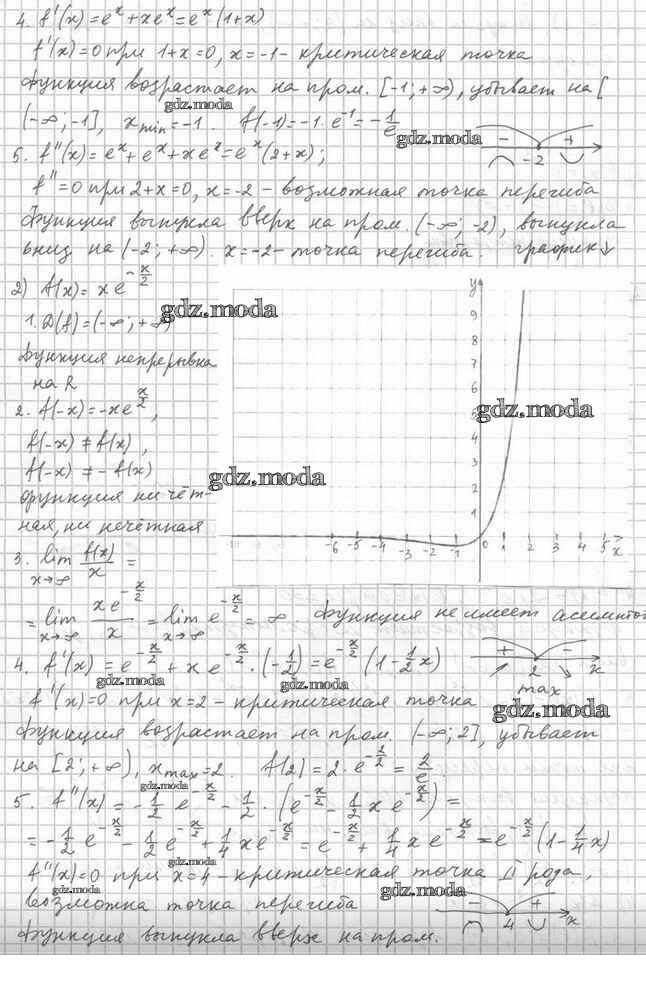 4. f'(x) = eˣ + xeˣ = eˣ(1+x)
f'(x) = 0 при 1+x=0, x=-1 - критическая точка
Функция возрастает на пром. [-1; +∞), убывает на [
gdz.moda
(-∞; -1], x min = -1. f(-1) = -1·e⁻¹ = -1/e
gdz.moda
- + -2
5. f''(x) = eˣ + eˣ + xeˣ = eˣ(2+x);
gdz.moda
f'' = 0 при 2+x=0, x=-2 - возможная точка перегиба
Функция выпукла вверх на пром. (-∞; -2), выпукла
вниз на (-2; +∞). x=-2 - точка перегиба. график ↓
2) f(x) = xe^(-x/2)
gdz.moda
1. D(f) = (-∞; +∞)
Функция непрерывна
на R
2. f(-x) = -xe^(x/2),
f(-x) ≠ f(x),
f(-x) ≠ -f(x)
функция ни чёт-
ная, ни нечётная
y
9
8
7
6
5
4
3
2
1
gdz.moda
gdz.moda
-6 -5 -4 -3 -2 -1 0 1 2 3 4 5 x
3. lim x→∞ f(x)/x =
= lim x→∞ xe^(-x/2)/x = lim x→∞ e^(-x/2) = ∞. Функция не имеет асимптот
4. f'(x) = e^(-x/2) + xe^(-x/2)·(-1/2) = e^(-x/2)(1 - 1/2 x)
+ - 2 x
max
gdz.moda
gdz.moda
f'(x) = 0 при x=2 - критическая точка
gdz.moda
Функция возрастает на пром. (-∞; 2], убывает
на [2; +∞), x max = 2. f(2) = 2·e^(-2/2) = 2/e
gdz.moda
5. f''(x) = -1/2 e^(-x/2) - 1/2·(e^(-x/2) - 1/2 xe^(-x/2)) =
gdz.moda
= -1/2 e^(-x/2) - 1/2 e^(-x/2) + 1/4 xe^(-x/2) = e^(-x/2) + 1/4 xe^(-x/2) = e^(-x/2)(1 - 1/4 x)
gdz.moda
f''(x) = 0 при x=4 - критическая точка II рода,
gdz.moda
gdz.moda
возможна точка перегиба
- + 4 x
Функция выпукла вверх на пром.